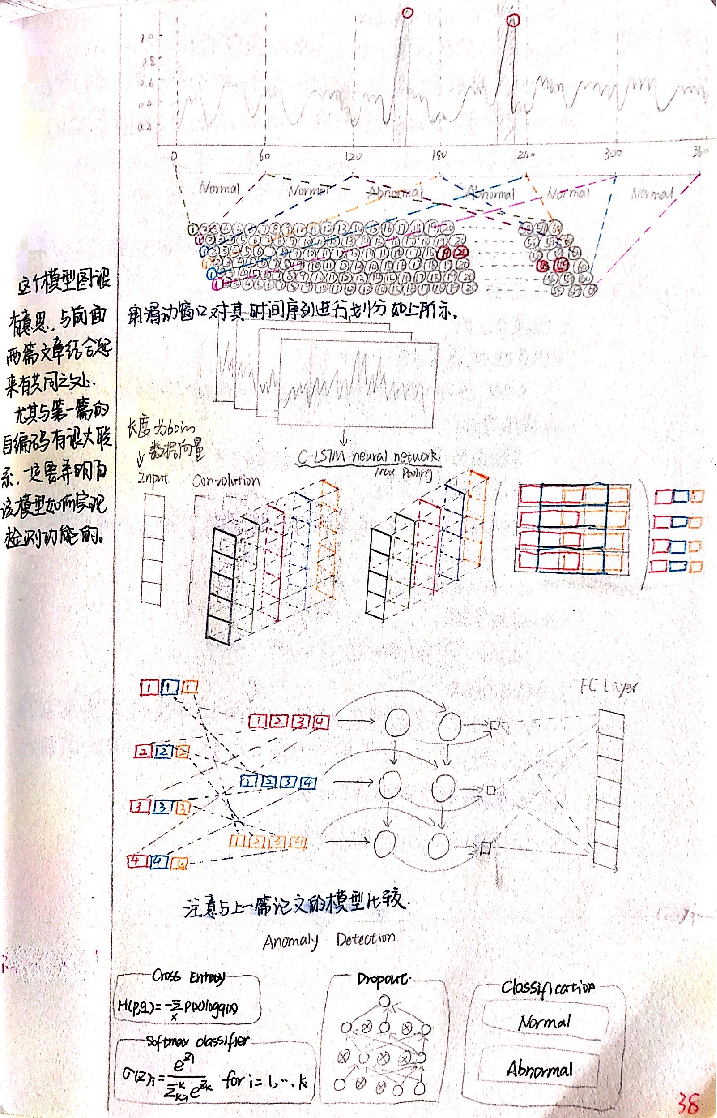 1.0
0.8
0.6
0.4
0.2
0 60 120 180 240 300 360
Normal Normal Abnormal Abnormal Normal Normal
用滑动窗口对其时间序列进行划分如上所示。
这个模型图很
有意思,与前面
两篇文章结合起
来有共同之处.
尤其与第一篇的
自编码有很大联
系,一定要弄明白
该模型如何实现
检测功能的。
长度为60的
数据向量
C-LSTM neural network
Input Convolution Max Pooling
FC Layer
1 1 1
1 2 3 4
2 2 2
1 2 3 4
3 3 3
1 2 3 4
4 4 4
注意与上一篇论文的模型比较.
Anomaly Detection
Cross Entropy
H(p,q)=-Σx p(x)logq(x)
Softmax classifier
σ(z)i = e^zi / Σk=1^K e^zk for i=1,…,k
Dropout
Classification
Normal
Abnormal
38